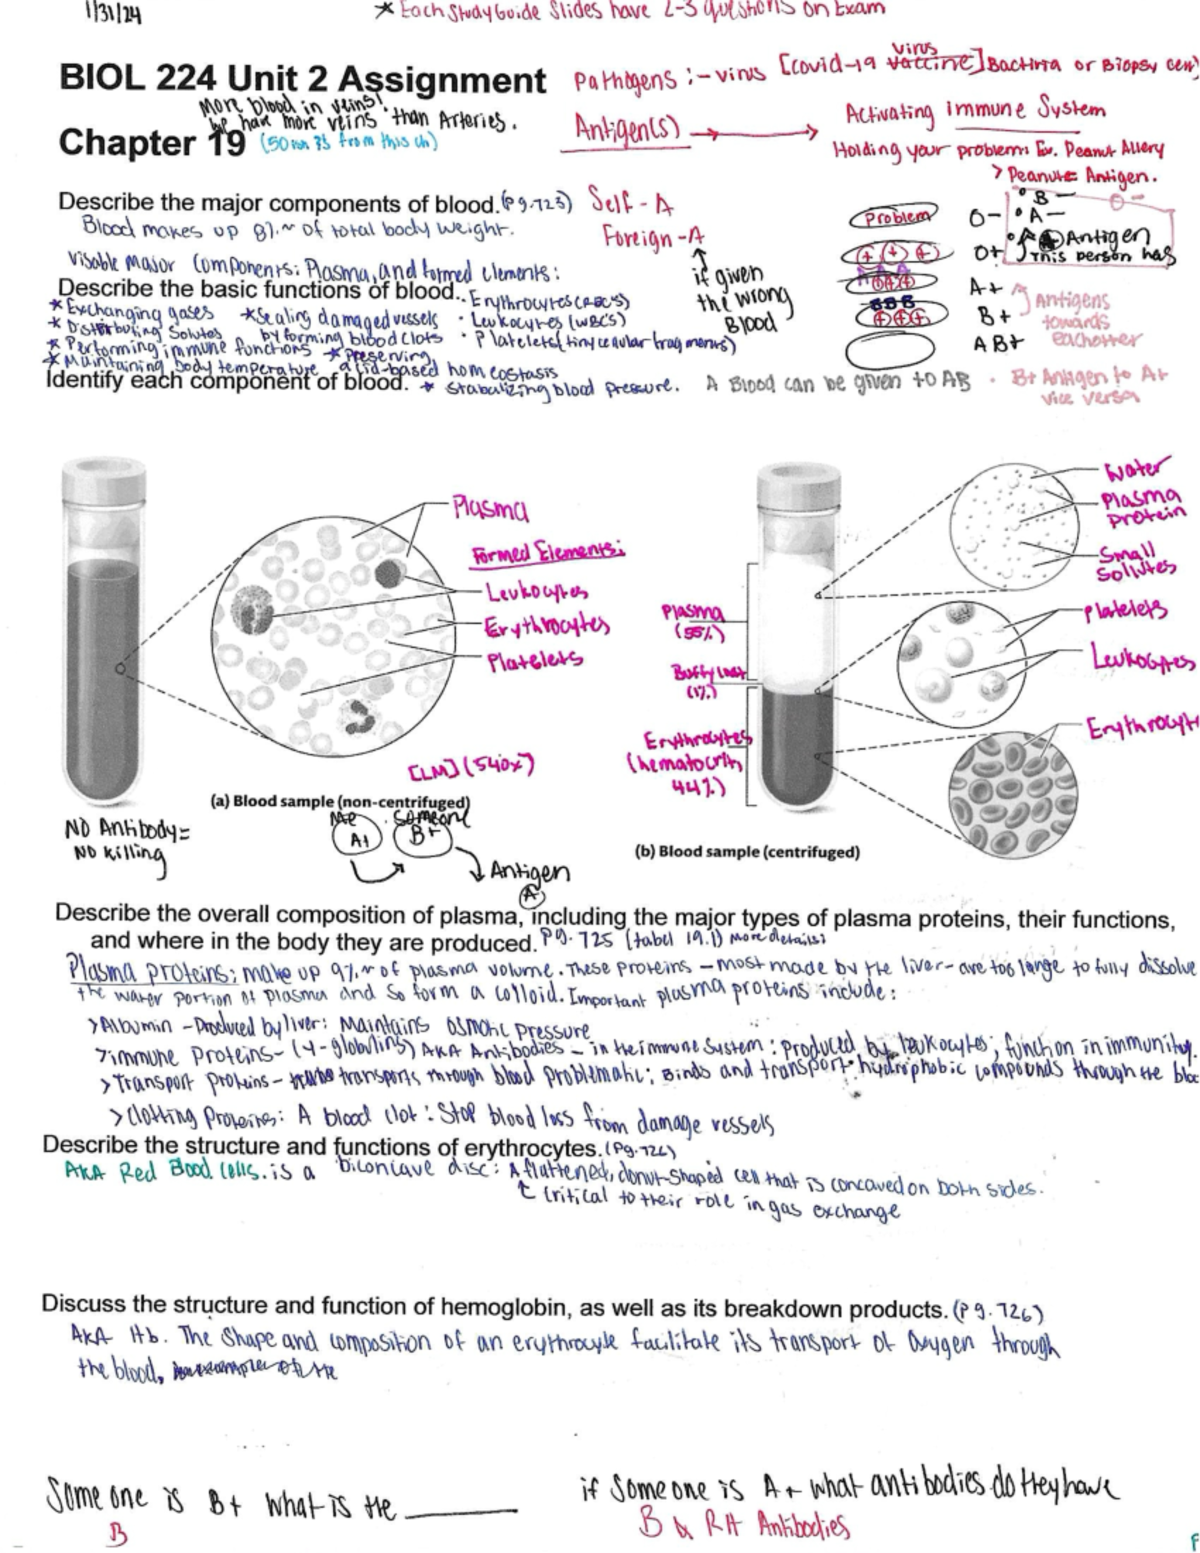 1/31/24
* Each Study Guide Slides have 2-3 questions on Exam
BIOL 224 Unit 2 Assignment
Pathogens :- virus [covid-19 vaccine] Bacteria or Biopsy
virus
More blood in veins!
we have more veins than Arteries.
Chapter 19
Antigen(s)
Activating immune System
Holding your problem: Ex. Peanut Allery
> Peanut = Antigen.
Describe the major components of blood. (Pg.723)
Self - A
Foreign - A
Blood makes up 8% ~ of total body weight.
Problem
O-
• B -
• A -
O -
O+
Antigen
This person has
Visable Major Components: Plasma, and formed elements:
if given
the wrong
Blood
Describe the basic functions of blood.
• Erythrocytes (RBC's)
• Leukocytes (WBC's)
• Platelets (tiny cellular fragments)
A+
B+
AB+
Antigens
towards
eachother
* Exchanging gases
* Sealing damaged vessels
by forming blood clots
* Distributing Solutes
* Performing immune functions
* Preserving
acid-based homeostasis
* Maintaining body temperature
Identify each component of blood.
* Stabalizing blood pressure.
A Blood can be given to AB
• B+ Antigen to A+
vice versa
Plasma
Formed Elements:
Leukocytes
Erythrocytes
Platelets
[LM] (540x)
(a) Blood sample (non-centrifuged)
Water
Plasma
protein
Small
Platelets
Leukocytes
Plasma
(55%)
(1%)
Erythrocytes
(hematocrit,
44%)
(b) Blood sample (centrifuged)
NO Antibody =
NO Killing
Me
A+
Someone
B+
Antigen
A
Describe the overall composition of plasma, including the major types of plasma proteins, their functions,
and where in the body they are produced. Pg. 725 (tabel 19.1) more details:
Plasma proteins: make up 9% ~ of plasma volume. These proteins - most made by the liver - are too large to fully dissolve
the water portion of plasma and so form a colloid. Important plasma proteins include:
> Albumin - Produced by liver: Maintains osmotic pressure
> immune Proteins - (γ-globulins) AKA Antibodies - in the immune System: produced by leukocytes; function in immunity.
> Transport Proteins - transports through blood problematic: Binds and transport hydrophobic compounds through the
> Clotting Proteins: A blood clot: Stop blood loss from damage vessels
Describe the structure and functions of erythrocytes. (Pg.726)
AKA Red Blood Cells. is a biconcave disc: A flattened, donut-shaped cell that is concaved on both sides.
critical to their role in gas exchange
Discuss the structure and function of hemoglobin, as well as its breakdown products. (Pg.726)
AKA Hb. The Shape and composition of an erythrocyte facilitate its transport of Oxygen through
the blood,
Some one is B+ what is the ______
B
if Someone is A+ what antibodies do they have
B & RH Antibodies